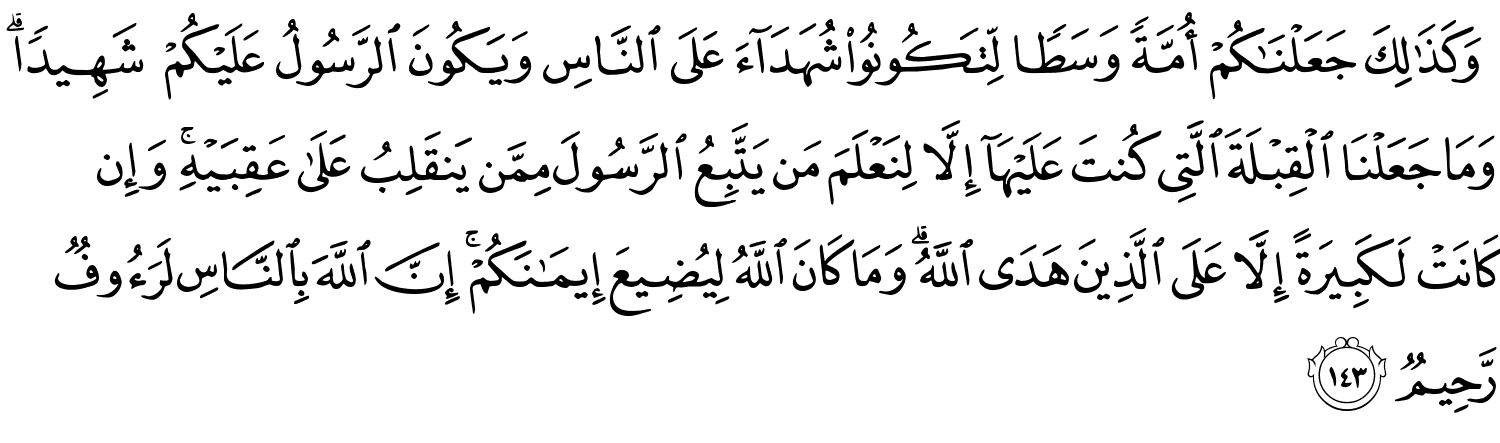 وَكَذَٰلِكَ جَعَلْنَـٰكُمْ أُمَّةً وَسَطًا لِّتَكُونُوا۟ شُهَدَآءَ عَلَى ٱلنَّاسِ وَيَكُونَ ٱلرَّسُولُ عَلَيْكُمْ شَهِيدًا ۗ
وَمَا جَعَلْنَا ٱلْقِبْلَةَ ٱلَّتِى كُنتَ عَلَيْهَآ إِلَّا لِنَعْلَمَ مَن يَتَّبِعُ ٱلرَّسُولَ مِمَّن يَنقَلِبُ عَلَىٰ عَقِبَيْهِ ۚ وَإِن
كَانَتْ لَكَبِيرَةً إِلَّا عَلَى ٱلَّذِينَ هَدَى ٱللَّهُ ۗ وَمَا كَانَ ٱللَّهُ لِيُضِيعَ إِيمَـٰنَكُمْ ۚ إِنَّ ٱللَّهَ بِٱلنَّاسِ لَرَءُوفٌ
رَّحِيمٌ ١٤٣